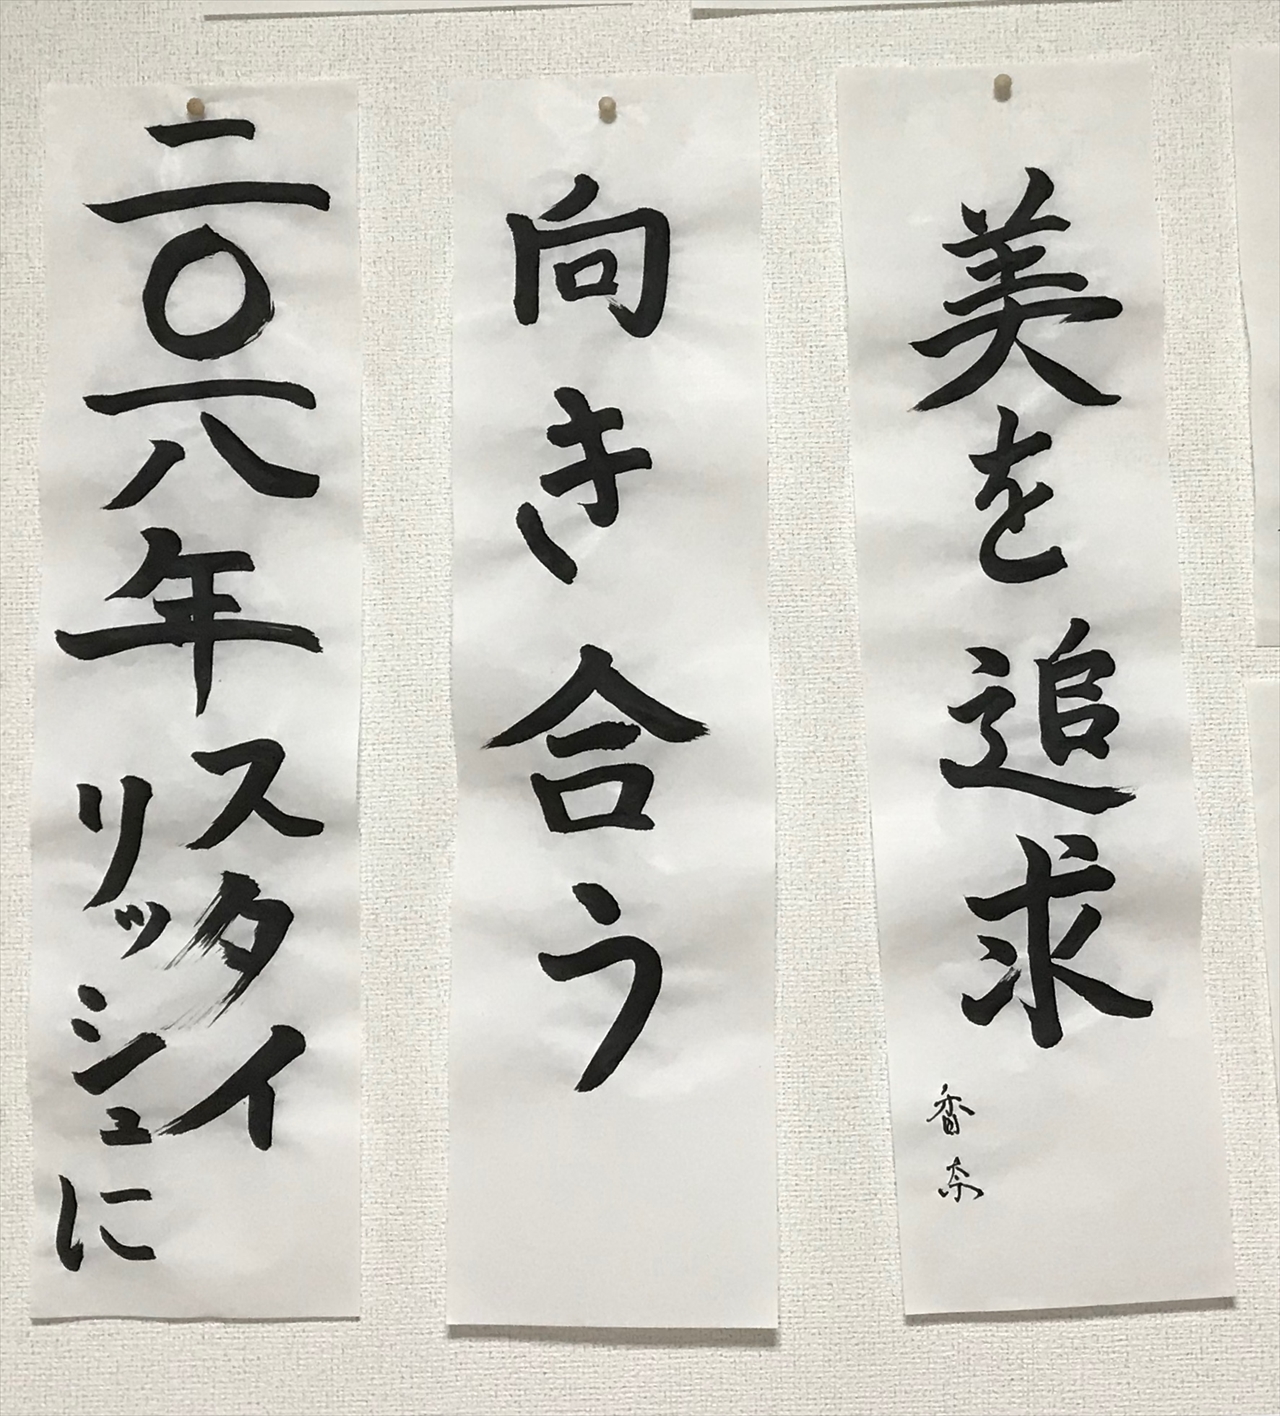 美を追求
香奈
向き合う
二〇一八年スタイ
リッシュに